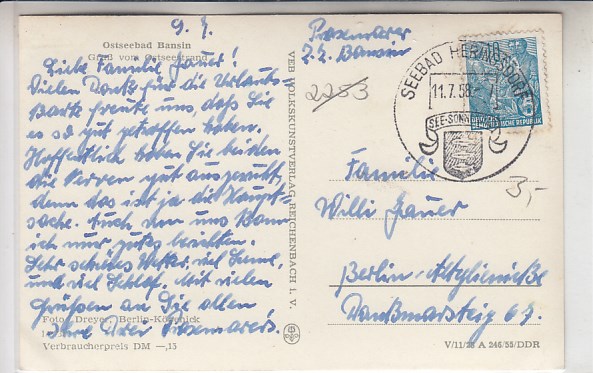 9. 7.
Ostseebad Bansin
Gruß vom Ostseestrand
Liebe Familie Gauer!
Vielen Dank für die Urlaubs-
karte freute uns, daß Sie
es so gut getroffen haben.
Hoffentlich haben Sie beiden
die Nerven gut ausgeruht,
denn das ist ja die Haupt-
sache. Auch von uns kann
ich nur gutes berichten.
Sehr schönes Wetter, viel Sonne,
und viel Schlaf. Mit vielen
Grüßen an Sie allen
Ihre drei
Foto: Dreyer, Berlin-Köpenick
Verbraucherpreis DM —,15
VEB VOLKSKUNSTVERLAG REICHENBACH I. V.
z. Z. Bansin
2253
SEEBAD HERINGSDORF
11.7.58
SEE-SONN
DEUTSCHE DEMOKRATISCHE REPUBLIK
3,-
Familie
Willi Gauer
Berlin-Altglienicke
V/11/28 A 246/55/DDR